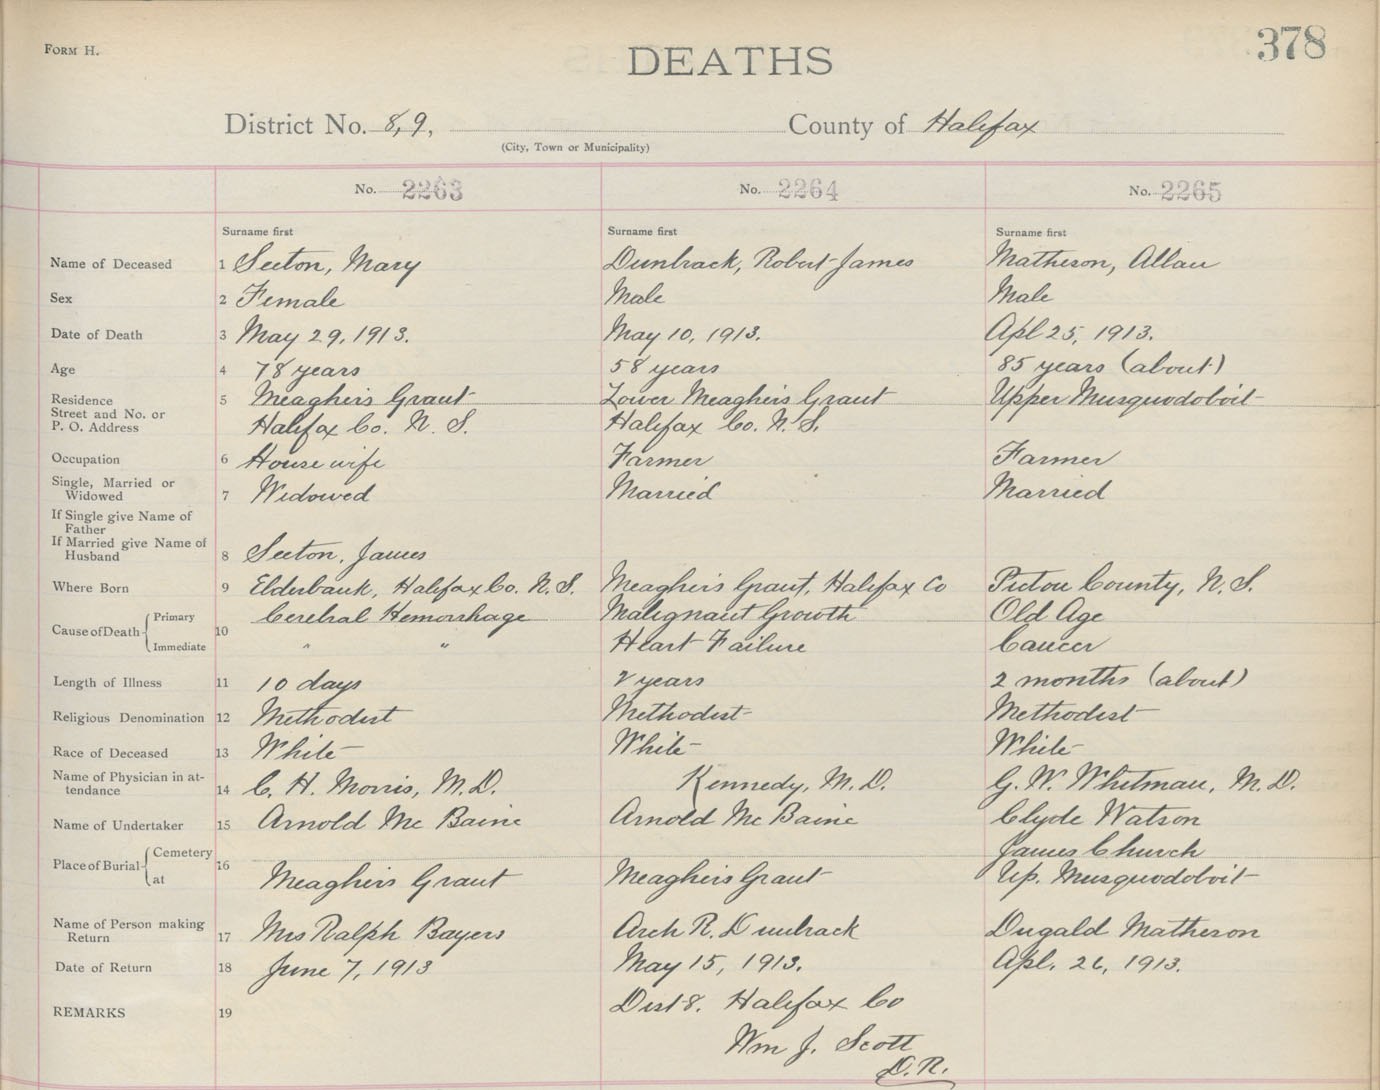 FORM H.
378
DEATHS
District No. 8,9, County of Halifax
(City, Town or Municipality)
No. 2263 No. 2264 No. 2265
Surname first Surname first Surname first
Name of Deceased 1 Seeton, Mary Dunbrack, Robert James Matheson, Allan
Sex 2 Female Male Male
Date of Death 3 May 29, 1913. May 10, 1913. Apl 25, 1913.
Age 4 78 years 58 years 85 years (about)
Residence 5 Meagher's Grant Lower Meagher's Grant Upper Musquodoboit
Street and No. or
P. O. Address Halifax Co. N. S. Halifax Co. N. S.
Occupation 6 House wife Farmer Farmer
Single, Married or
Widowed 7 Widowed Married Married
If Single give Name of
Father
If Married give Name of
Husband 8 Seeton, James
Where Born 9 Elderbank, Halifax Co. N. S. Meagher's Grant, Halifax Co Pictou County, N. S.
Cause of Death Primary 10 Cerebral Hemorrhage Malignant Growth Old Age
Immediate " " Heart Failure Cancer
Length of Illness 11 10 days 2 years 2 months (about)
Religious Denomination 12 Methodist Methodist Methodist
Race of Deceased 13 White White White
Name of Physician in at-
tendance 14 C. H. Morris, M. D. Kennedy, M. D. G. W. Whitman, M. D.
Name of Undertaker 15 Arnold Mc Baine Arnold Mc Baine Clyde Watson
Place of Burial Cemetery 16 James Church
at Meagher's Grant Meagher's Grant Up. Musquodoboit
Name of Person making
Return 17 Mrs Ralph Bayers Arch R. Dunbrack Dugald Matheson
Date of Return 18 June 7, 1913 May 15, 1913. Apl. 26, 1913.
REMARKS 19 Dist 8. Halifax Co
Wm J. Scott
D. R.